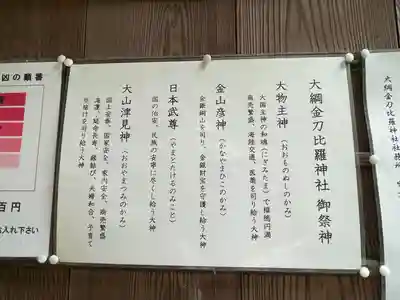 大綱金刀比羅神社 御祭神
大物主神（おおものぬしのかみ）
大国主神の和魂（にぎみたま）で福徳円満
商売繁盛、海陸交通、医薬を司り給う大神
金山彦神（かなやまひこのかみ）
金銀銅山を司り、金銀財宝を守護し給う大神
日本武尊（やまとたけるのみこと）
国の治安、民族の安寧に尽くし給う大神
大山津見神（おおやまつみのかみ）
国土安泰、国家安全、家内安全、商売繁盛
海運、延命長寿、縁結び、夫婦和合、子育て
見届けを司り給う大神
凶の順番
百円
お入れ下さい
大綱金刀比羅神社